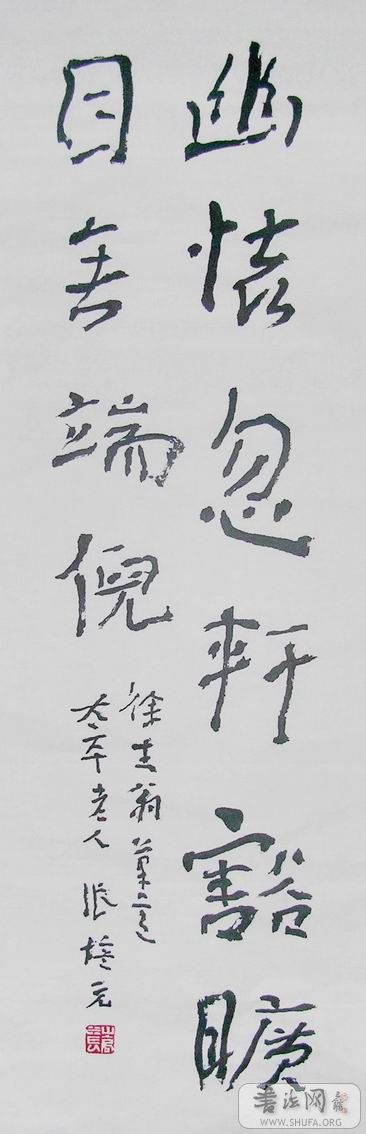 幽懷忽軒豁曠
目無端倪
徐生翁筆意
老人張培元
书法网
WWW.SHUFA.ORG